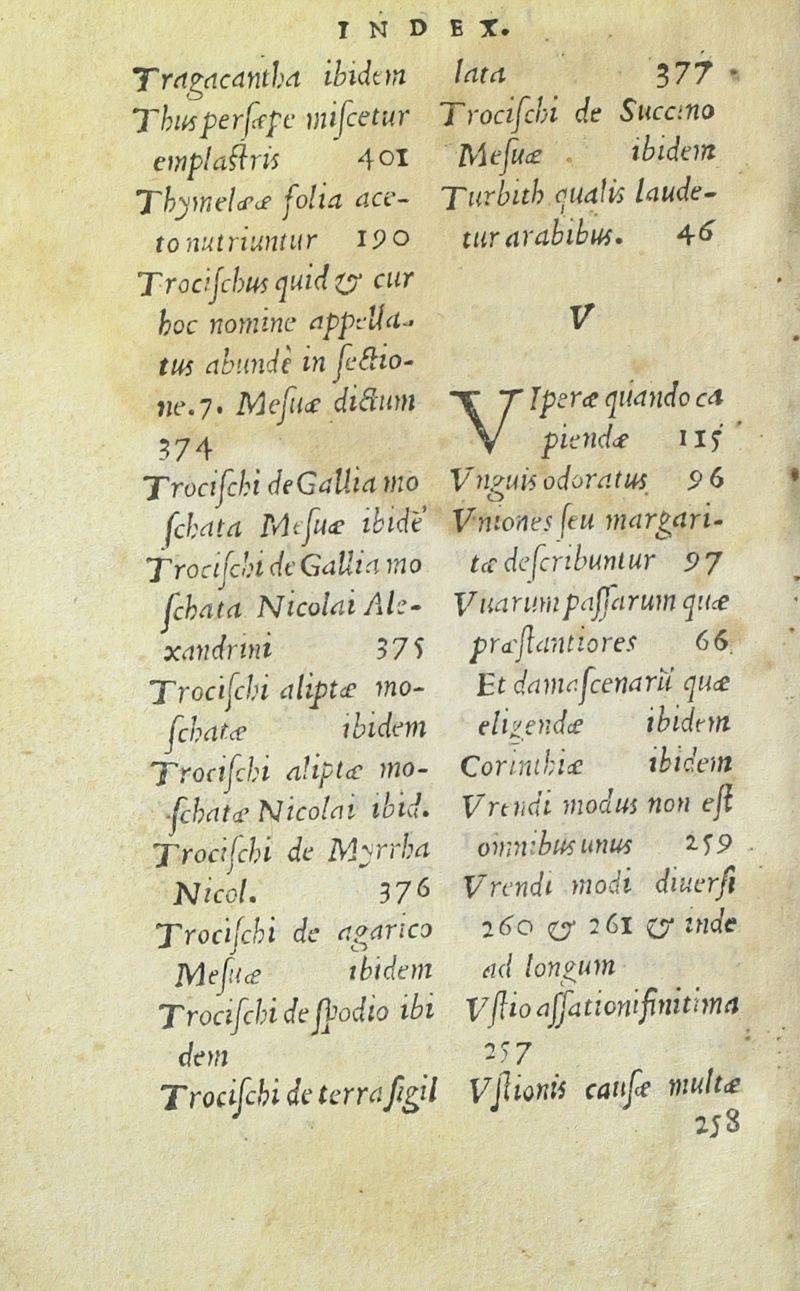 INDEX.
Tragacantha ibidem
Thus persæpe miscetur
emplastris 401
Thymelææ folia ace-
to nutriuntur 190
Trocischus quid & cur
hoc nomine appella-
tus abundè in sectio-
ne.7. Mesuæ dictum
374
Trocischi de Gallia mo
schata Mesuæ ibidē
Trocischi de Gallia mo
schata Nicolai Ale-
xandrini 375
Trocischi aliptæ mo-
schatæ ibidem
Trocischi aliptæ mo-
schatæ Nicolai ibid.
Trocischi de Myrrha
Nicol. 376
Trocischi de agarico
Mesuæ ibidem
Trocischi de spodio ibi
dem
Trocischi de terra sigil
lata 377
Trocischi de Succino
Mesuæ ibidem
Turbith qualis laude-
tur arabibus. 46
V
VIperæ quando ca
piendæ 115
Vnguis odoratus 96
Vniones seu margari-
tæ describuntur 97
Vuarum passarum quæ
præstantiores 66.
Et damascenarũ quæ
eligendæ ibidem
Corinthiæ ibidem
Vrendi modus non est
omnibus unus 259
Vrendi modi diuersi
260 & 261 & inde
ad longum
Vstio assationi finitima
257
Vstionis causæ multæ
258